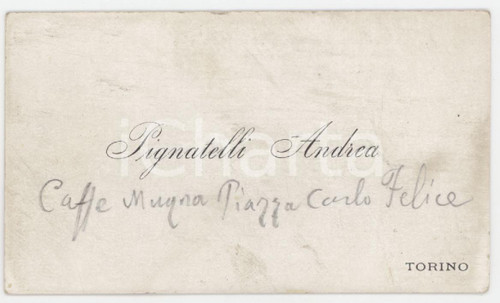 Pignatelli Andrea
Caffe Mugna Piazza Carlo Felice
TORINO
iCharta